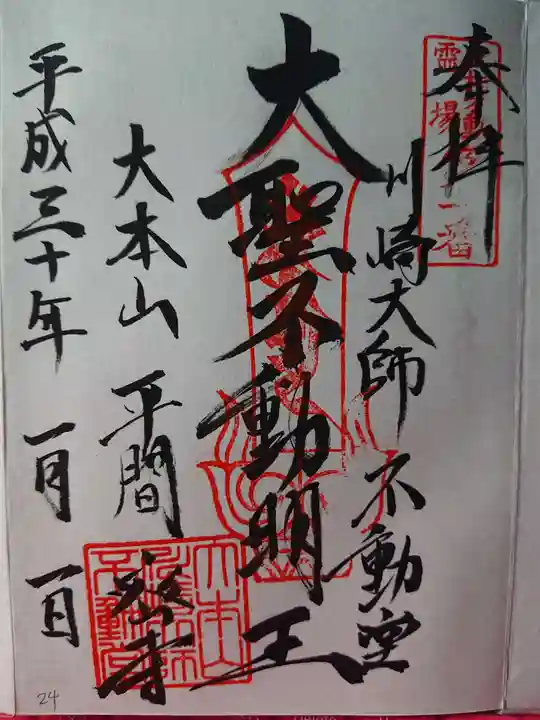 奉拝
川崎大師 不動堂
大聖不動明王
大本山 平間寺
平成三十年 一月 一日
霊場
一番
24